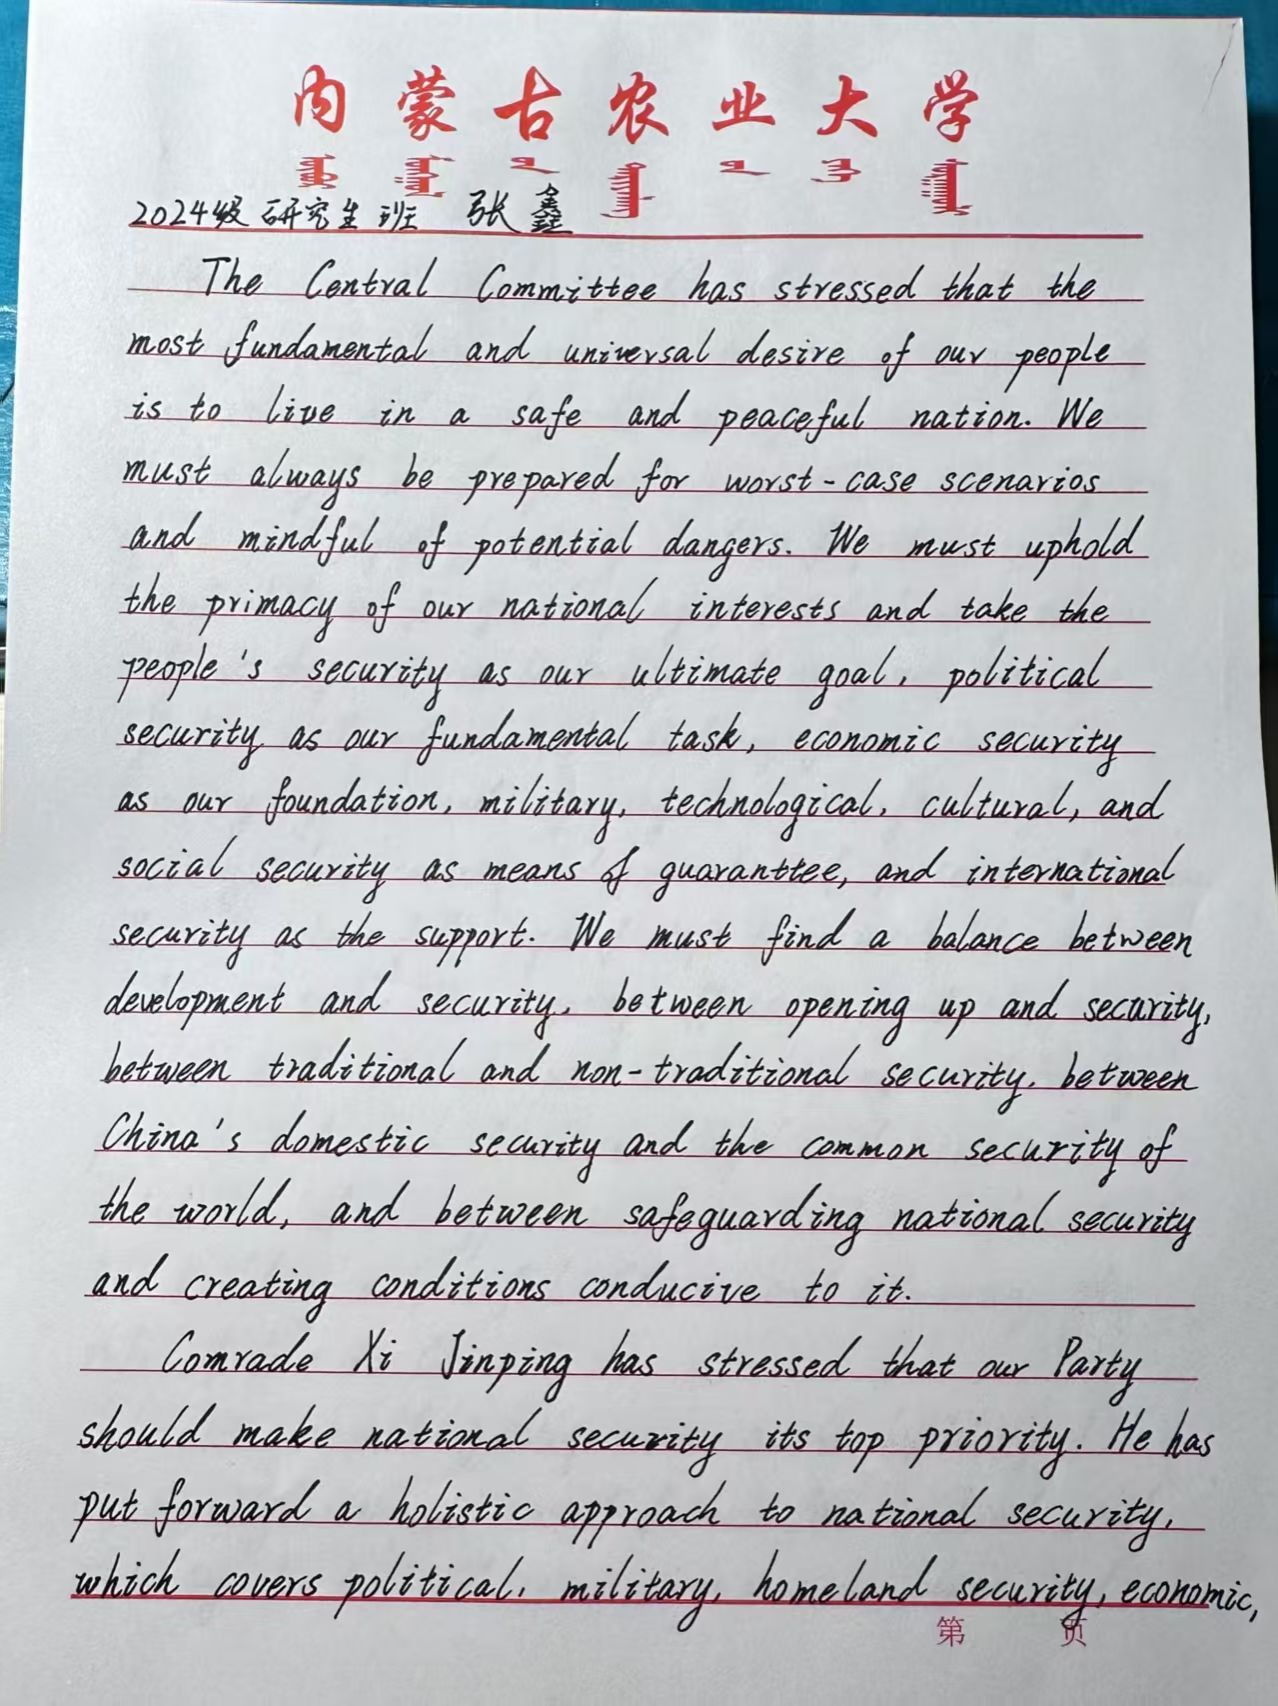 内蒙古农业大学
2024级 研究生 班 张鑫
The Central Committee has stressed that the
most fundamental and universal desire of our people
is to live in a safe and peaceful nation. We
must always be prepared for worst-case scenarios
and mindful of potential dangers. We must uphold
the primacy of our national interests and take the
people's security as our ultimate goal, political
security as our fundamental task, economic security
as our foundation, military, technological, cultural, and
social security as means of guaranttee, and international
security as the support. We must find a balance between
development and security, between opening up and security,
between traditional and non-traditional security, between
China's domestic security and the common security of
the world, and between safeguarding national security
and creating conditions conducive to it.
Comrade Xi Jinping has stressed that our Party
should make national security its top priority. He has
put forward a holistic approach to national security,
which covers political, military, homeland security, economic,
第 页